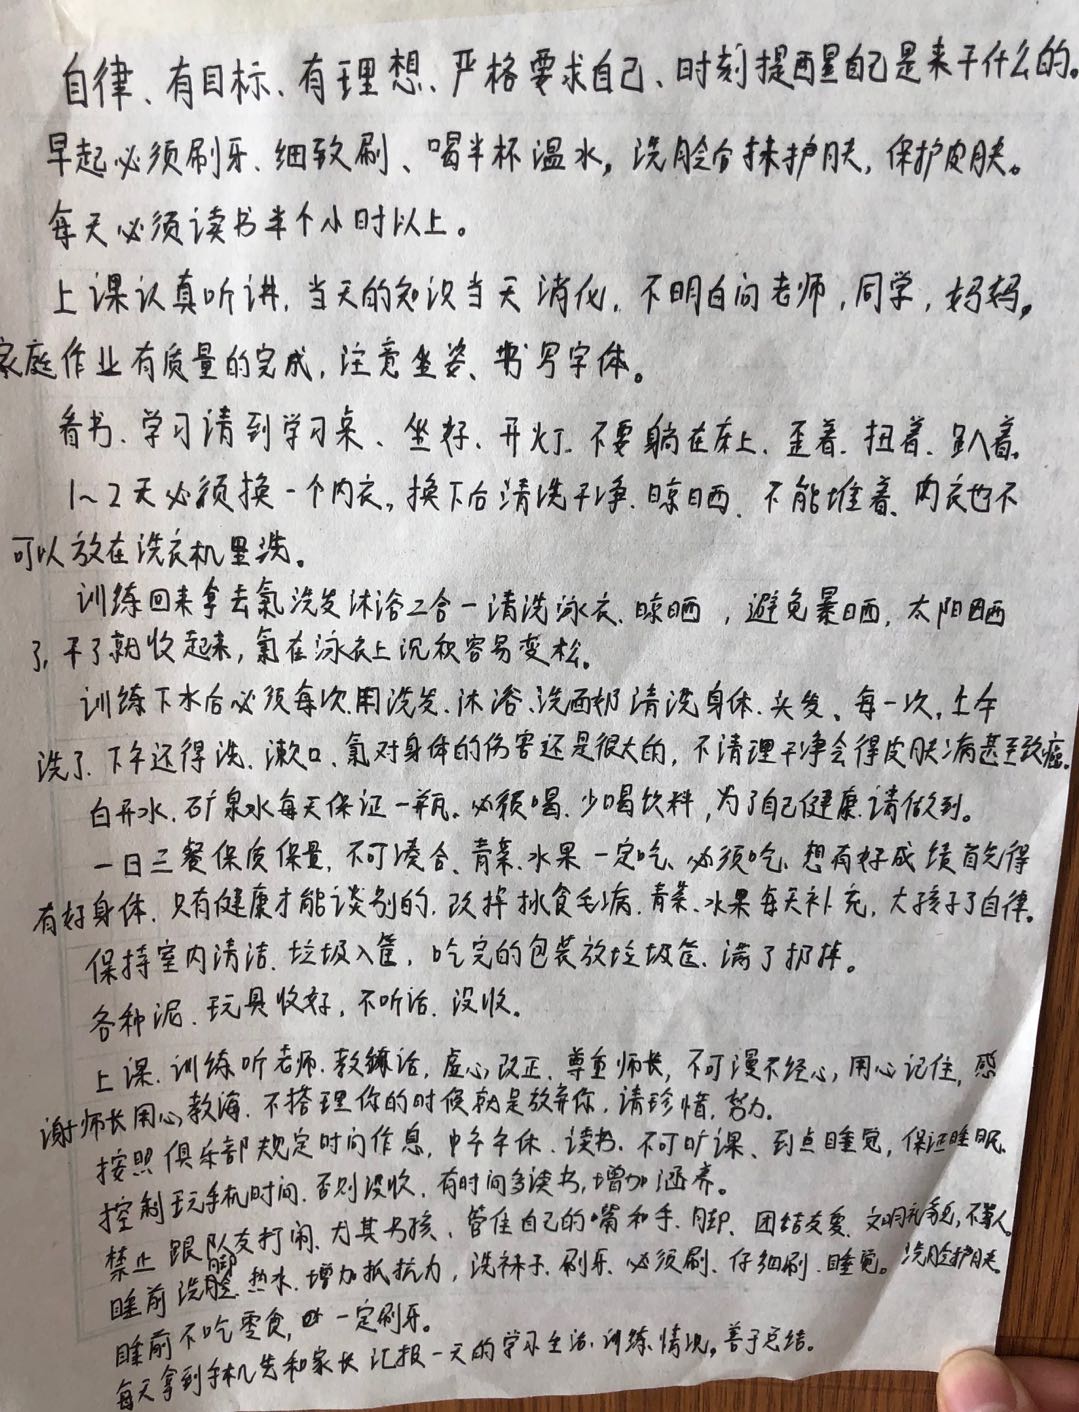 自律、有目标、有理想、严格要求自己、时刻提醒自己是来干什么的。
早起必须刷牙、细致刷、喝半杯温水，洗脸台抹护肤，保护皮肤。
每天必须读书半个小时以上。
上课认真听讲，当天的知识当天消化，不明白问老师，同学，妈妈，
家庭作业有质量的完成，注意坐姿、书写字体。
看书、学习请到学习桌、坐好、开灯、不要躺在床上、歪着、扭着、趴着。
1~2天必须换一个内衣，换下后清洗干净、晾晒、不能堆着、内衣也不
可以放在洗衣机里洗。
训练回来拿去氯洗发沐浴二合一清洗泳衣、晾晒，避免暴晒，太阳晒
了，干了就收起来，氯在泳衣上沉积容易变松。
训练下水后必须每次用洗发、沐浴、洗面奶清洗身体、头发、每一次，上午
洗了、下午还得洗、漱口、氯对身体的伤害还是很大的，不清理干净会得皮肤病甚至致癌。
白开水、矿泉水每天保证一瓶。必须喝、少喝饮料，为了自己健康、请做到。
一日三餐保质保量，不可凑合、青菜、水果一定吃、必须吃、想有好成绩首先得
有好身体、只有健康才能谈别的，改掉挑食毛病、青菜、水果每天补充，大孩子了自律。
保持室内清洁、垃圾入筐，吃完的包装放垃圾筐、满了扔掉。
各种泥、玩具收好，不听话、没收。
上课、训练听老师、教练话，虚心改正、尊重师长，不可漫不经心，用心记住，感
谢师长用心教海、不搭理你的时候就是放弃你，请珍惜，努力。
按照俱乐部规定时间作息，中午午休、读书、不可旷课、到点睡觉，保证睡眠、
控制玩手机时间、否则没收、有时间多读书，增加涵养。
禁止跟队友打闹、尤其男孩、管住自己的嘴和手、脚、团结友爱、文明礼貌，不骂人
睡前洗脚、热水、增加抵抗力，洗袜子、刷牙、必须刷、仔细刷、睡觉。洗脸护肤。
睡前不吃零食，一定刷牙。
每天拿到手机先和家长汇报一天的学习生活、训练情况，善于总结。